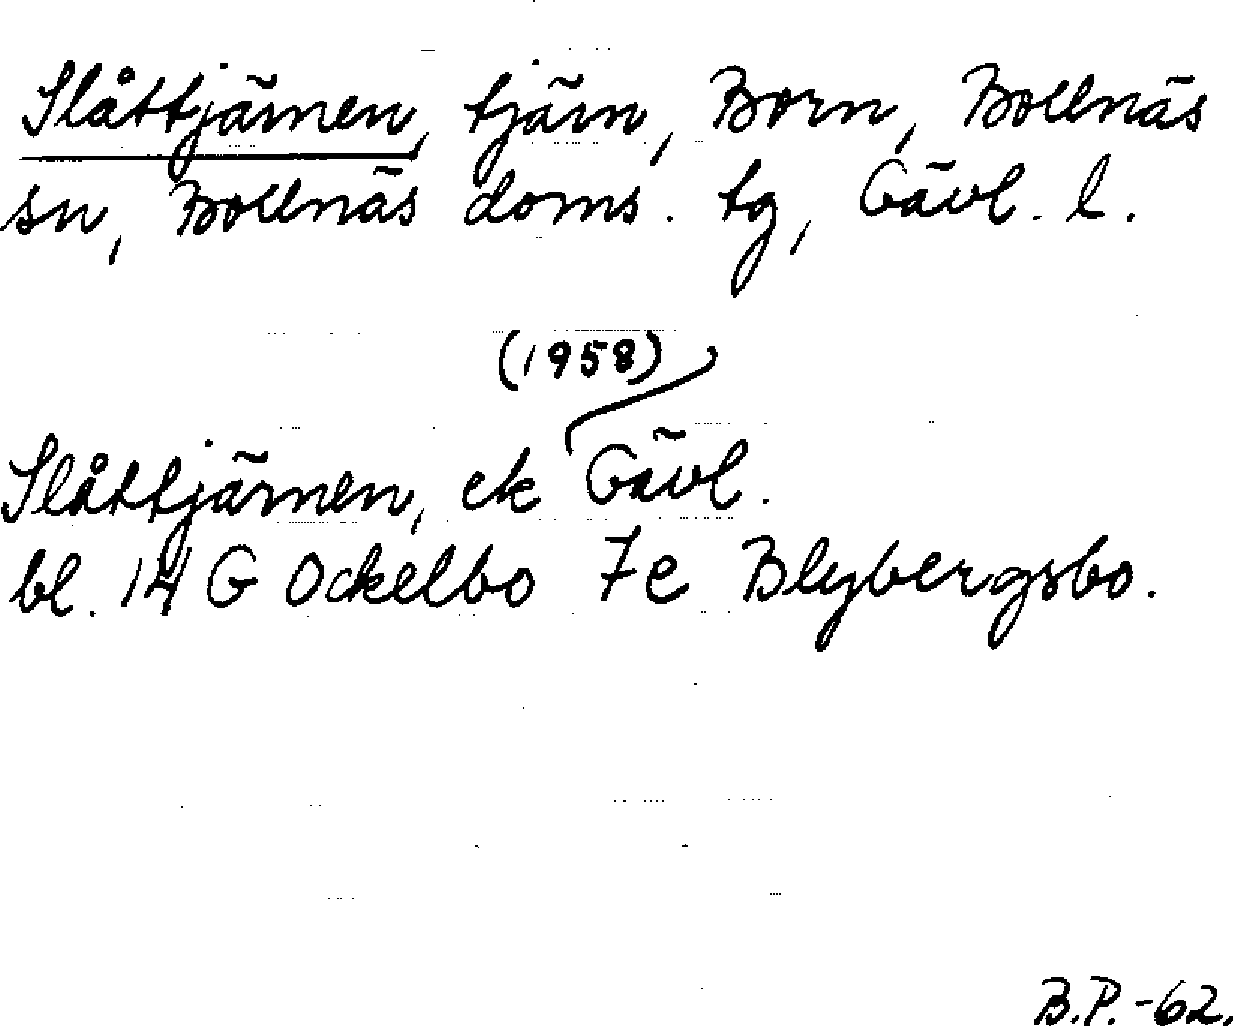 Slåttjärnen, tjärn, Born, Bollnäs
sn, Bollnäs doms. tg, Gävl. l.
(1958)
Slåttjärnen, ek Gävl.
bl. 14 G Ockelbo 7e Blybergsbo.
B.P.-62.